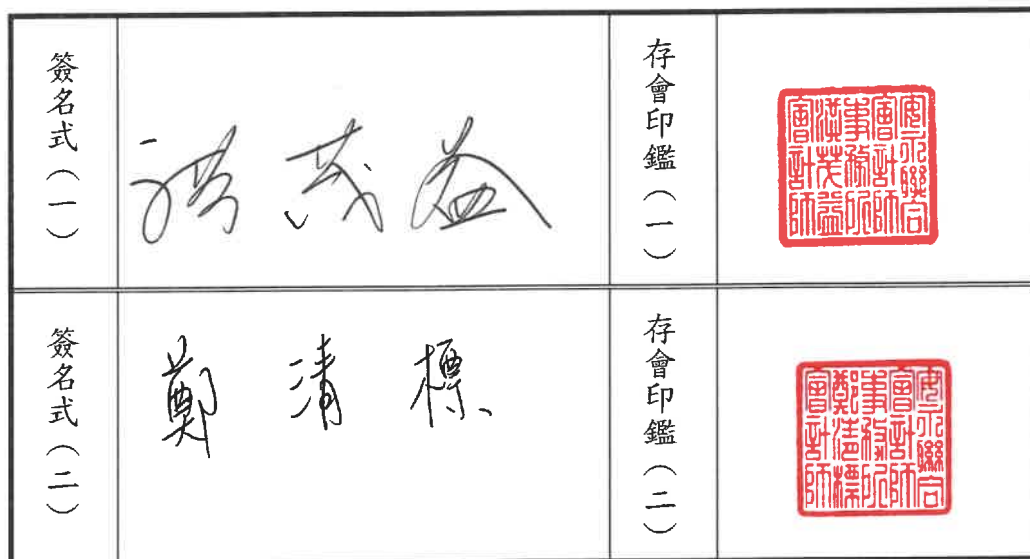 簽名式（一）
洪茂益
存會印鑑（一）
安永聯合
會計師
事務所
洪茂益
會計師
簽名式（二）
鄭清標
存會印鑑（二）
安永聯合
會計師
事務所
鄭清標
會計師